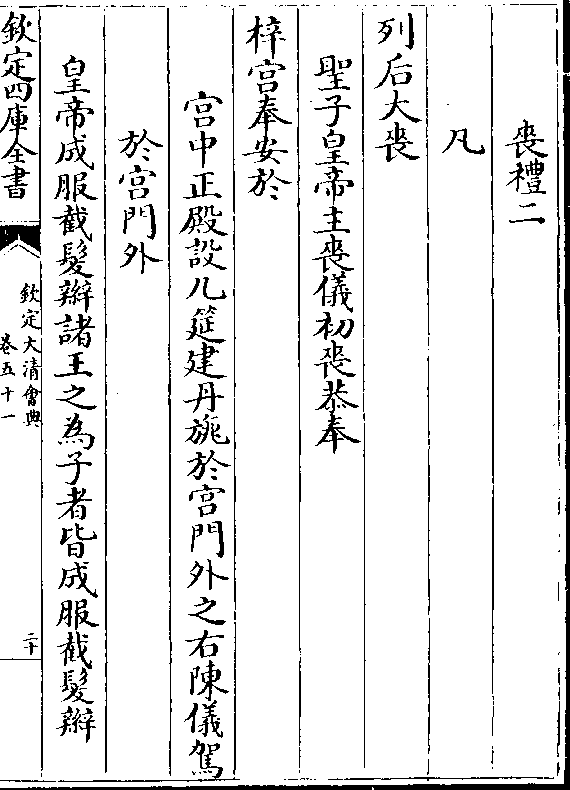 喪禮二
凡
列后大喪
聖子皇帝主喪儀初喪恭奉
梓宫奉安於
宫中正殿設几筵建丹旐於宫門外之右陳儀駕
於宫門外
皇帝成服截髮辮諸王之為子者皆成服截髮辮
欽定四庫全書
欽定大清會典
卷五十一
二十